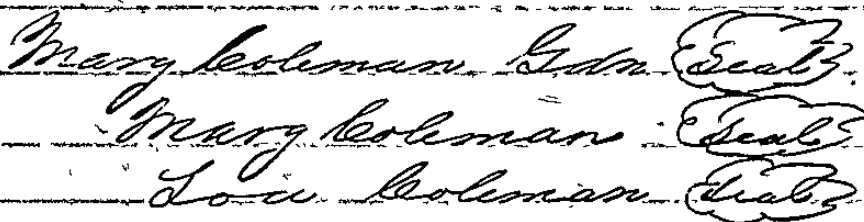 Mary Coleman Gdn Seal
Mary Coleman Seal
Lou Coleman Seal